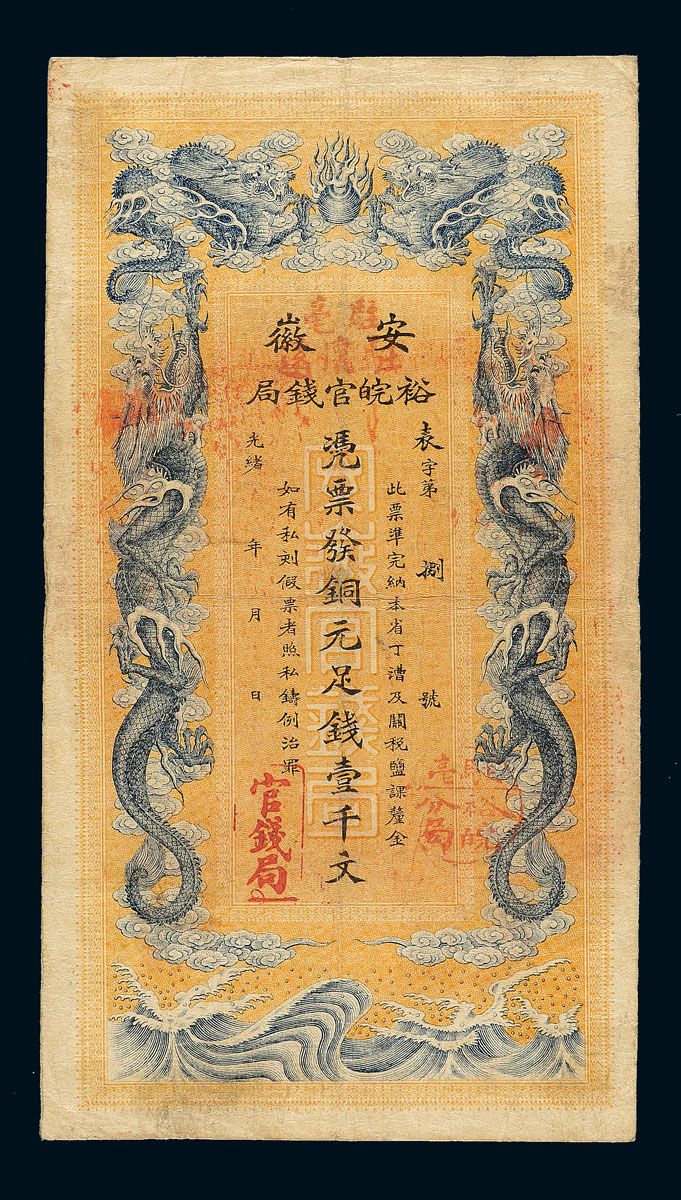 安徽
裕皖官錢局
袁字第 捌 號
此票準完納本省丁漕及關税鹽課釐金
憑票發銅元足錢壹千文
如有私刻假票者照私鑄例治罪
光緒 年 月 日
官錢局
裕皖
分局